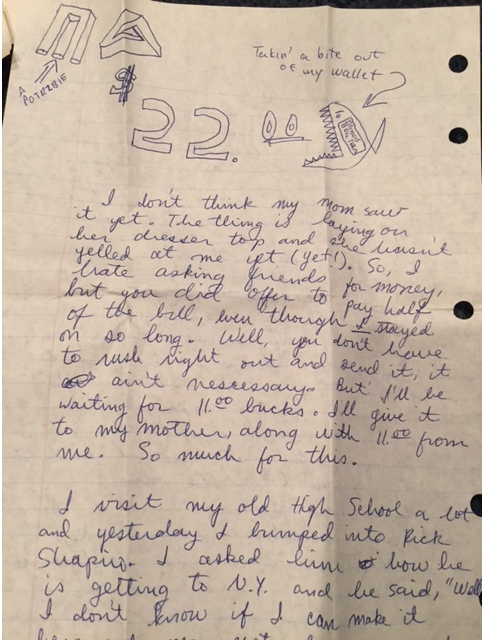 A POTRZBIE
Takin' a bite out
of my wallet
$22.00
I don't think my mom saw
it yet. The thing is laying on
her dresser top and she hasn't
yelled at me yet (yet!). So, I
hate asking friends for money,
but you did offer to pay half
of the bill, even though I stayed
on so long. Well, you don't have
to rush right out and send it, it
ain't nescessary. But I'll be
waiting for 11.00 bucks. I'll give it
to my mother, along with 11.00 from
me. So much for this.
I visit my old High School a lot
and yesterday I bumped into Rick
Shapiro. I asked him how he
is getting to N.Y. and he said, "Well
I don't know if I can make it